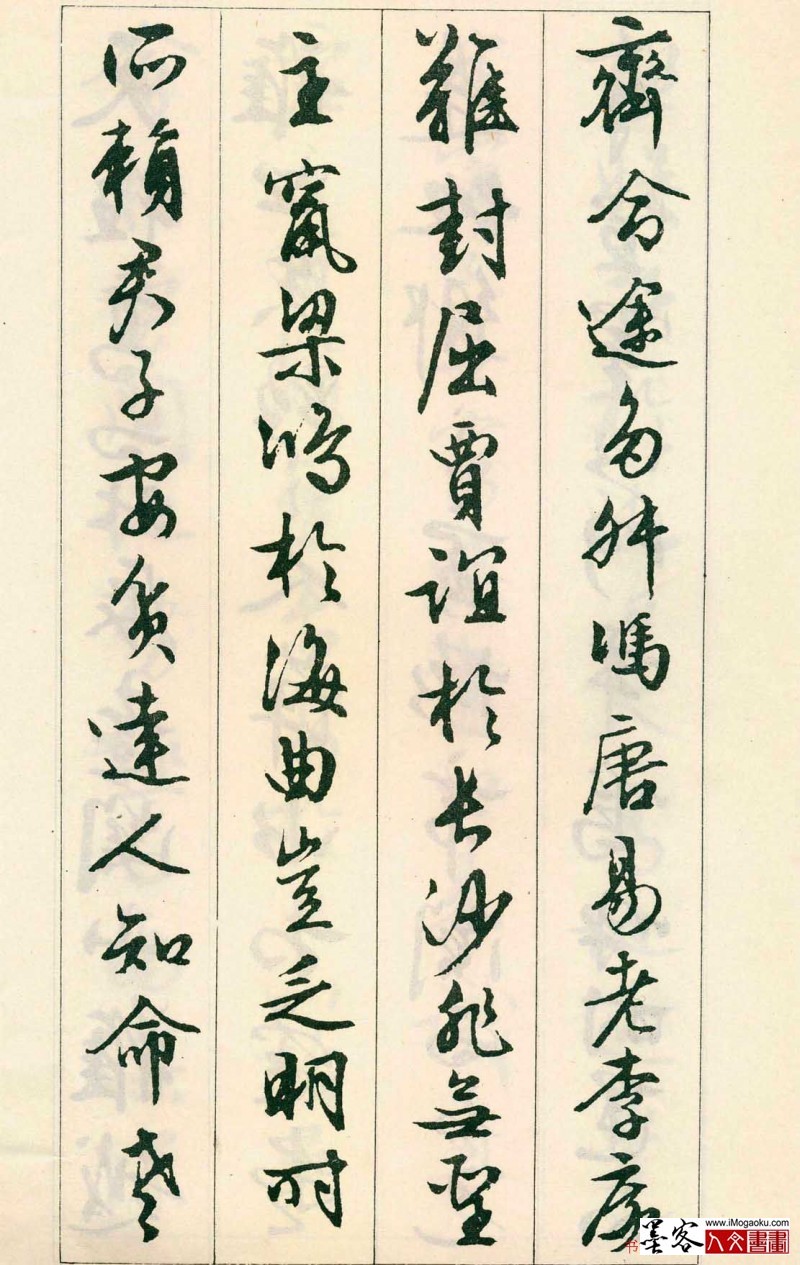 齊命途多舛馮唐易老李廣
難封屈賈誼於長沙非無聖
主竄梁鴻於海曲豈乏明時
所賴君子安貧達人知命老
书
墨客
www.iMogaoku.com
人文書畫